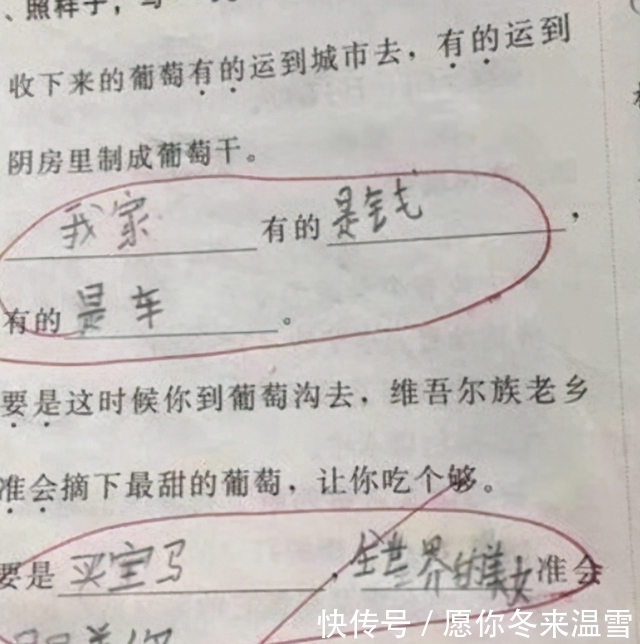 、照样子，写
收下来的葡萄有的运到城市去，有的运到
阴房里制成葡萄干。
我家有的是钱，
有的是车。
要是这时候你到葡萄沟去，维吾尔族老乡
准会摘下最甜的葡萄，让你吃个够。
要是买宝马，全世界的美女准会
快传号／愿你冬来温雪